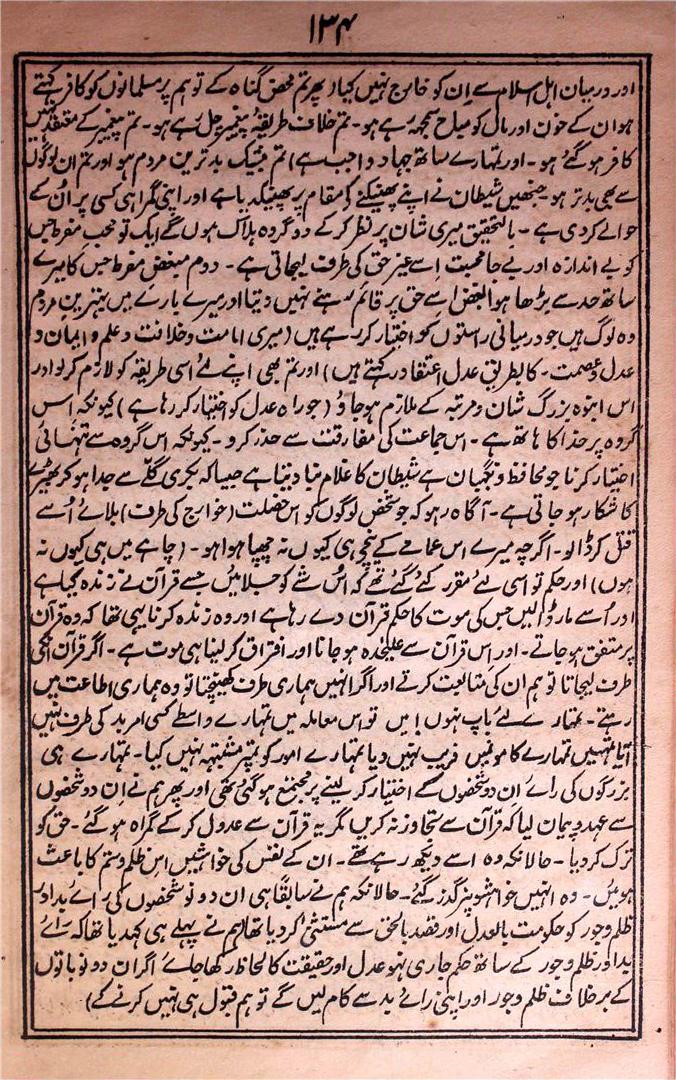 ۱۳۴
اور درمیان اہل اسلام سے ان کو خارج نہیں کیا، پھر تم محض گناہ کے توہم پر مسلمانوں کو کافر کہتے
ہو ان کے خون اور مال کو مباح سمجھ رہے ہو۔ تم خلاف طریقۂ پیغمبر چل رہے ہو۔ تم پیغمبر کے معتقد نہیں
کافر ہو گئے ہو۔ اور تمہارے ساتھ جہاد واجب ہے) تم بیشک بدترین مردم ہو اور تم ان لوگوں
سے بھی بدتر ہو۔ جنھیں شیطان نے اپنے پھینکنے کے مقام پر پھینکدیا ہے اور اپنی گمراہی کسی پر ان کے
حوالے کر دی ہے۔ بالتحقیق میری شان پر نظر کر کے دو گروہ ہلاک ہوں گے ایک تو محب مفرط جس
کو بے اندازہ اور بے جا محبت اسے غیر حق کی طرف لیجاتی ہے۔ دوم مبغض مفرط جس کا میرے
ساتھ حد سے بڑھا ہوا بغض اسے حق پر قائم رہنے نہیں دیتا اور میرے بارے میں بہترین مردم
وہ لوگ ہیں جو درمیانی راستوں کو اختیار کر رہے ہیں (میری امامت و خلافت و علم و ایمان و
عدل و عصمت۔ کا بطریق عدل اعتقاد رکھتے ہیں) اور تم بھی اپنے لئے اسی طریقہ کو لازم کر لو اور
اس انبوہ بزرگ شان و مرتبہ کے ملازم ہو جاؤ (جو راہ عدل کو اختیار کر رہا ہے) کیونکہ اس
گروہ پر خدا کا ہاتھ ہے۔ اس جماعت کی مفارقت سے حذر کرو۔ کیونکہ اس گروہ سے تنہائی
اختیار کرنا جو محافظ و نگہبان ہے شیطان کا غلام بنا دیتا ہے جیسا کہ بکری گلے سے جدا ہو کر بھیڑیے
کا شکار ہو جاتی ہے۔ آگاہ رہو کہ جو شخص لوگوں کو اس خصلت (خوارج کی طرف) بلائے اُسے
قتل کر ڈالو۔ اگرچہ میرے اس عمامے کے نیچے ہی کیوں نہ چھپا ہوا ہو۔ (چاہے میں ہی کیوں نہ
ہوں) اور حکم تو اسی لئے مقرر کئے گئے تھے کہ اُس شے کو جلائیں جسے قرآن نے زندہ کیا ہے
اور اُسے مار ڈالیں جس کی موت کا حکم قرآن دے رہا ہے اور وہ زندہ کرنا یہی تھا کہ وہ قرآن
پر متفق ہو جاتے۔ اور اس قرآن سے علیٰحدہ ہو جانا اور افتراق کر لینا ہی موت ہے۔ اگر قرآن انکی
طرف لیجاتا تو ہم ان کی متابعت کرتے اور اگر انہیں ہماری طرف کھینچتا تو وہ ہماری اطاعت میں
رہتے۔ تمہارے لئے باپ نہوں! میں تو اس معاملہ میں تمہارے واسطے کسی امر بد کی طرف نہیں
آیا تمہیں تمہارے کاموں میں فریب نہیں دیا تمہارے امور کو تمپر مشتبہ نہیں کیا۔ تمہارے ہی
بزرگوں کی رائے ان دو شخصوں کے اختیار کر لینے پر مجتمع ہو گئی تھی اور پھر ہم نے ان دو شخصوں
سے عہد و پیمان لیا کہ قرآن سے تجاوز نہ کریں مگر یہ قرآن سے عدول کر کے گمراہ ہو گئے۔ حق کو
ترک کر دیا۔ حالانکہ وہ اسے دیکھ رہے تھے۔ ان کے نفس کی خواہشیں اس ظلم و ستم کا باعث
ہوئیں۔ وہ انہیں خواہشوں پر گذر گئے۔ حالانکہ ہم نے سابقاً ہی ان دونو شخصوں کی رائے بد اور
ظلم و جور کو حکومت بالعدل اور قصد بالحق سے مستثنیٰ کر دیا تھا (ہم نے پہلے ہی کہدیا تھا کہ رائے
بد اور ظلم و جور کے ساتھ حکم جاری نہو عدل اور حقیقت کا لحاظ رکھا جائے اگر ان دونو باتوں
کے برخلاف ظلم و جور اور اپنی رائے بد سے کام لیں گے تو ہم قبول ہی نہیں کرنے کے)